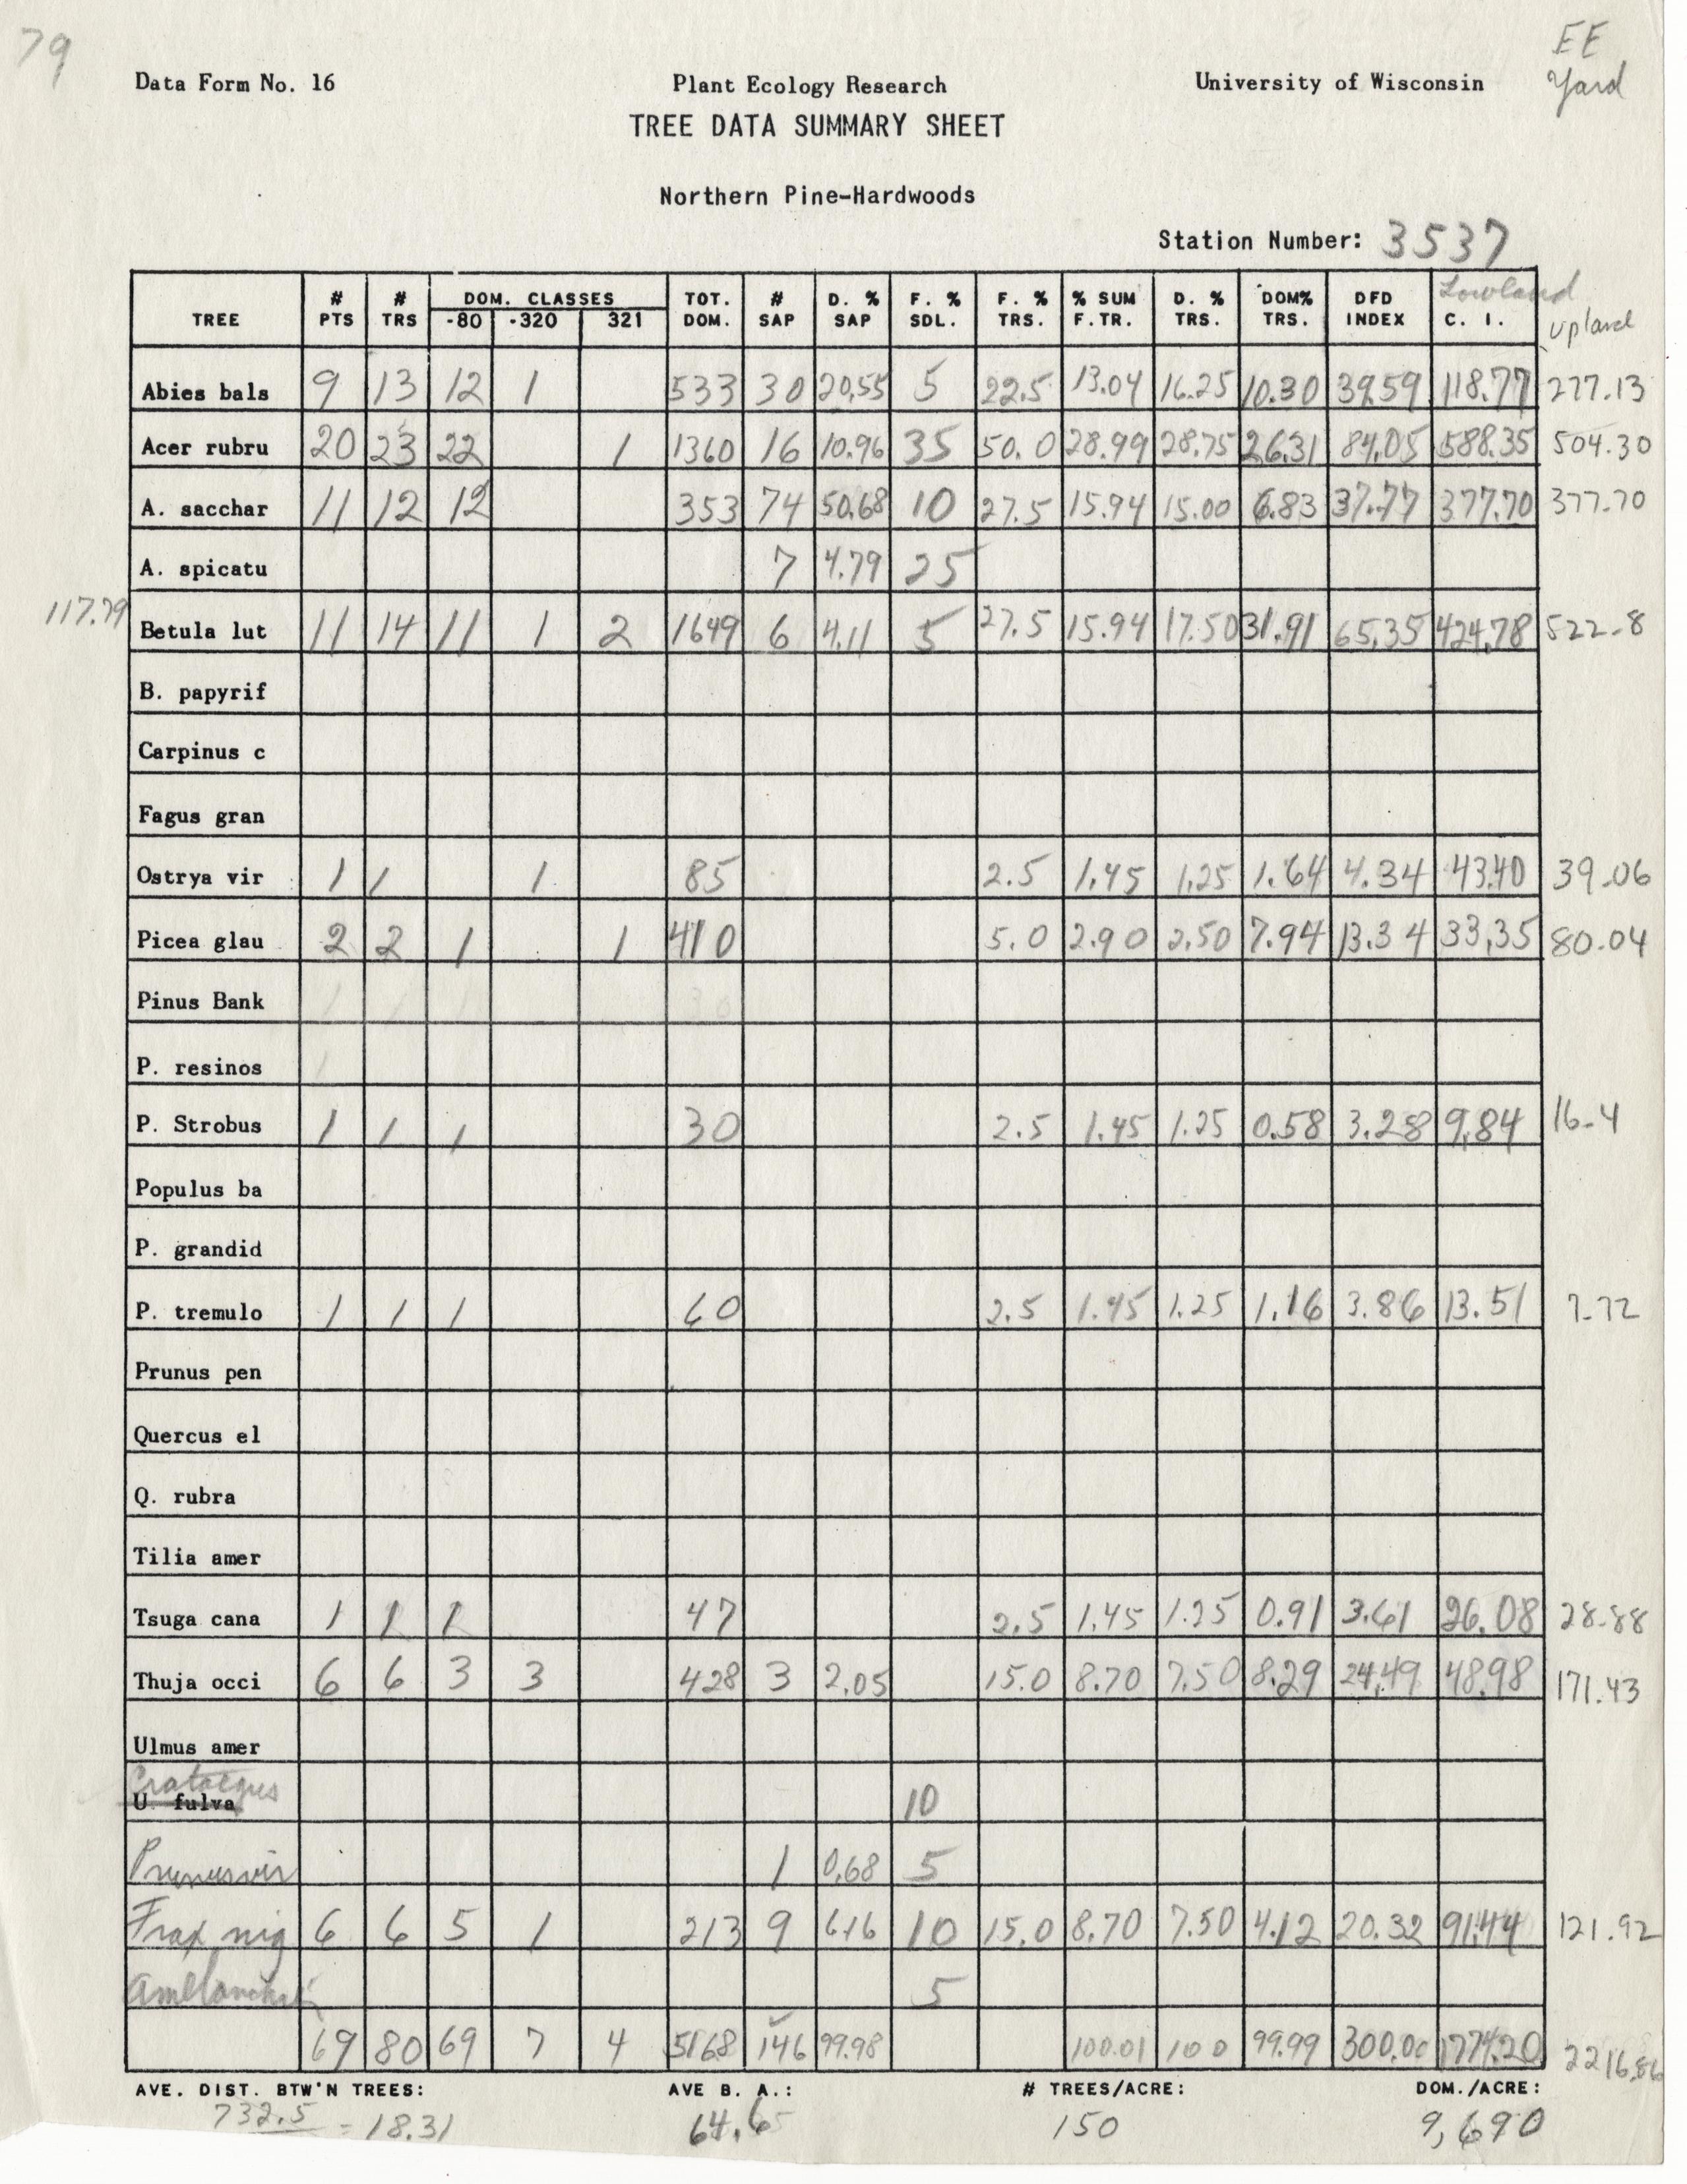 79
EE
Yard
Data Form No. 16 Plant Ecology Research University of Wisconsin
TREE DATA SUMMARY SHEET
Northern Pine-Hardwoods
Station Number: 3537
TREE # PTS # TRS DOM. CLASSES -80 -320 321 TOT. DOM. # SAP D. % SAP F. % SDL. F. % TRS. % SUM F. TR. D. % TRS. DOM% TRS. DFD INDEX Lowland C. I. upland
Abies bals 9 13 12 1 533 30 20.55 5 22.5 13.04 16.25 10.30 39.59 118.77 277.13
Acer rubru 20 23 22 1 1360 16 10.96 35 50.0 28.99 28.75 26.31 84.05 588.35 504.30
A. sacchar 11 12 12 353 74 50.68 10 27.5 15.94 15.00 6.83 37.77 377.70 377.70
A. spicatu 7 4.79 25
117.79 Betula lut 11 14 11 1 2 1649 6 4.11 5 27.5 15.94 17.50 31.91 65.35 424.78 522.8
B. papyrif
Carpinus c
Fagus gran
Ostrya vir 1 1 1 85 2.5 1.45 1.25 1.64 4.34 43.40 39.06
Picea glau 2 2 1 1 410 5.0 2.90 2.50 7.94 13.34 33.35 80.04
Pinus Bank
P. resinos
P. Strobus 1 1 1 30 2.5 1.45 1.25 0.58 3.28 9.84 16.4
Populus ba
P. grandid
P. tremulo 1 1 1 60 2.5 1.45 1.25 1.16 3.86 13.51 7.72
Prunus pen
Quercus el
Q. rubra
Tilia amer
Tsuga cana 1 1 1 47 2.5 1.45 1.25 0.91 3.61 26.08 28.88
Thuja occi 6 6 3 3 428 3 2.05 15.0 8.70 7.50 8.29 24.49 48.98 171.43
Ulmus amer
Crataegus
U. fulva 10
Prunus vir 1 0.68 5
Frax nig 6 6 5 1 213 9 6.16 10 15.0 8.70 7.50 4.12 20.32 91.44 121.92
5
69 80 69 7 4 5168 146 99.98 100.01 100 99.99 300.00 1774.20 2216.86
AVE. DIST. BTW'N TREES: AVE B. A.: # TREES/ACRE: DOM./ACRE:
732.5 = 18.31 64.6 150 9,690